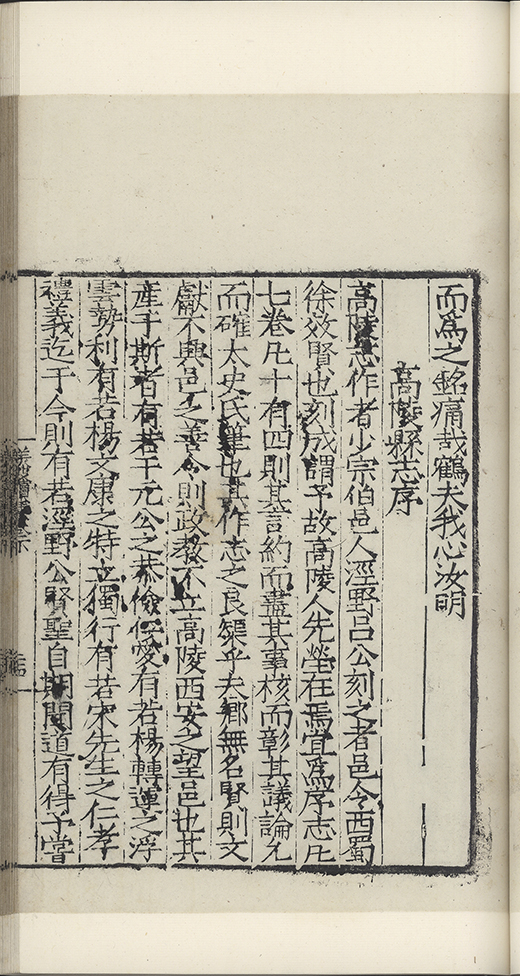 而爲之銘痛哉鶴夫我心汝明
高陵縣志序
高陵志作者少宗伯邑人涇野呂公刻之者邑令西蜀
徐效賢也刻成謂予故高陵人先塋在焉宜爲序志凡
七卷凡十有四則其言約而盡其事核而彰其議論允
而確太史氏筆也其作志之良榘乎夫鄉無名賢則文
獻不興邑之善令則政教不立高陵西安之望邑也其
產于斯者有若于元公之恭儉仁愛有若楊轉運之浮
雲勢利有若楊文康之特立獨行有若宋先生之仁孝
禮義迄于今則有若涇野公賢聖自期聞道有得予嘗